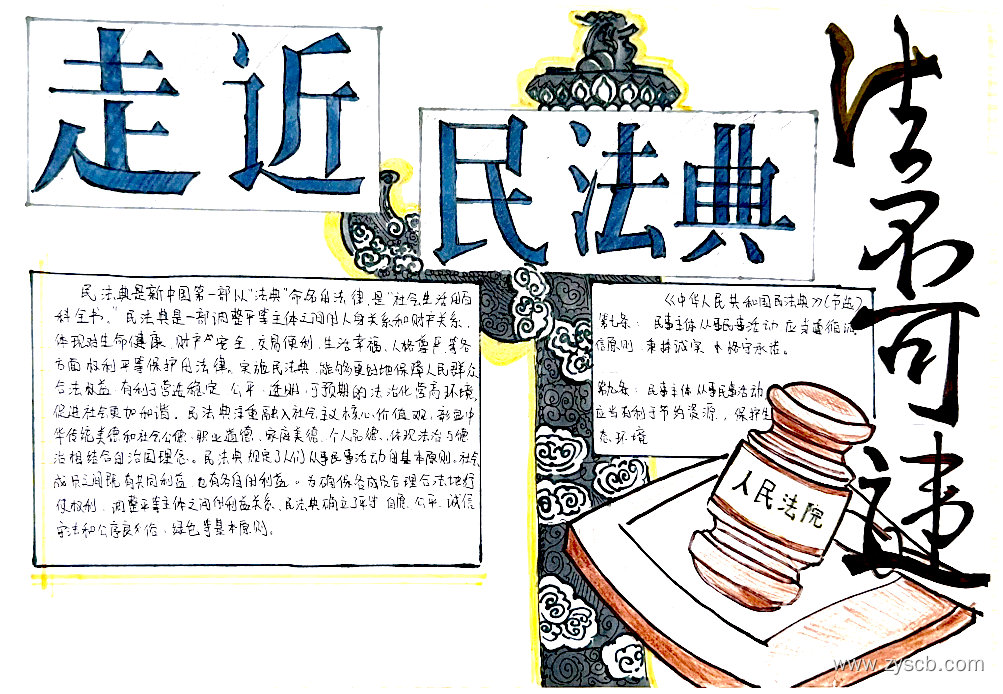 走近
民法典
法不可违
民法典是新中国第一部以“法典”命名的法律,是“社会生活的百
科全书。”民法典是一部调整平等主体之间的人身关系和财产关系,
体现对生命健康、财产安全、交易便利、生活幸福、人格尊严等各
方面权利平等保护的法律。实施民法典,能够更好地保障人民群众
合法权益,有利于营造稳定、公平、透明、可预期的法治化营商环境,
促进社会更加和谐。民法典注重融入社会主义核心价值观,彰显中
华传统美德和社会公德、职业道德、家庭美德、个人品德,体现法治与德
治相结合的治国理念。民法典规定了人们从事民事活动的基本原则,社会
成员之间既有共同利益,也有各自的利益。为确保各成员合理合法地行
使权利,调整平等主体之间的利益关系,民法典确立了平等、自愿、公平、诚信
守法和公序良俗、绿色等基本原则。
《中华人民共和国民法典》(节选)
第七条:民事主体从事民事活动,应当遵循诚
信原则,秉持诚实,恪守承诺。
第九条:民事主体从事民事活动
应当有利于节约资源,保护生
态环境
人民法院
www.zyscb.com